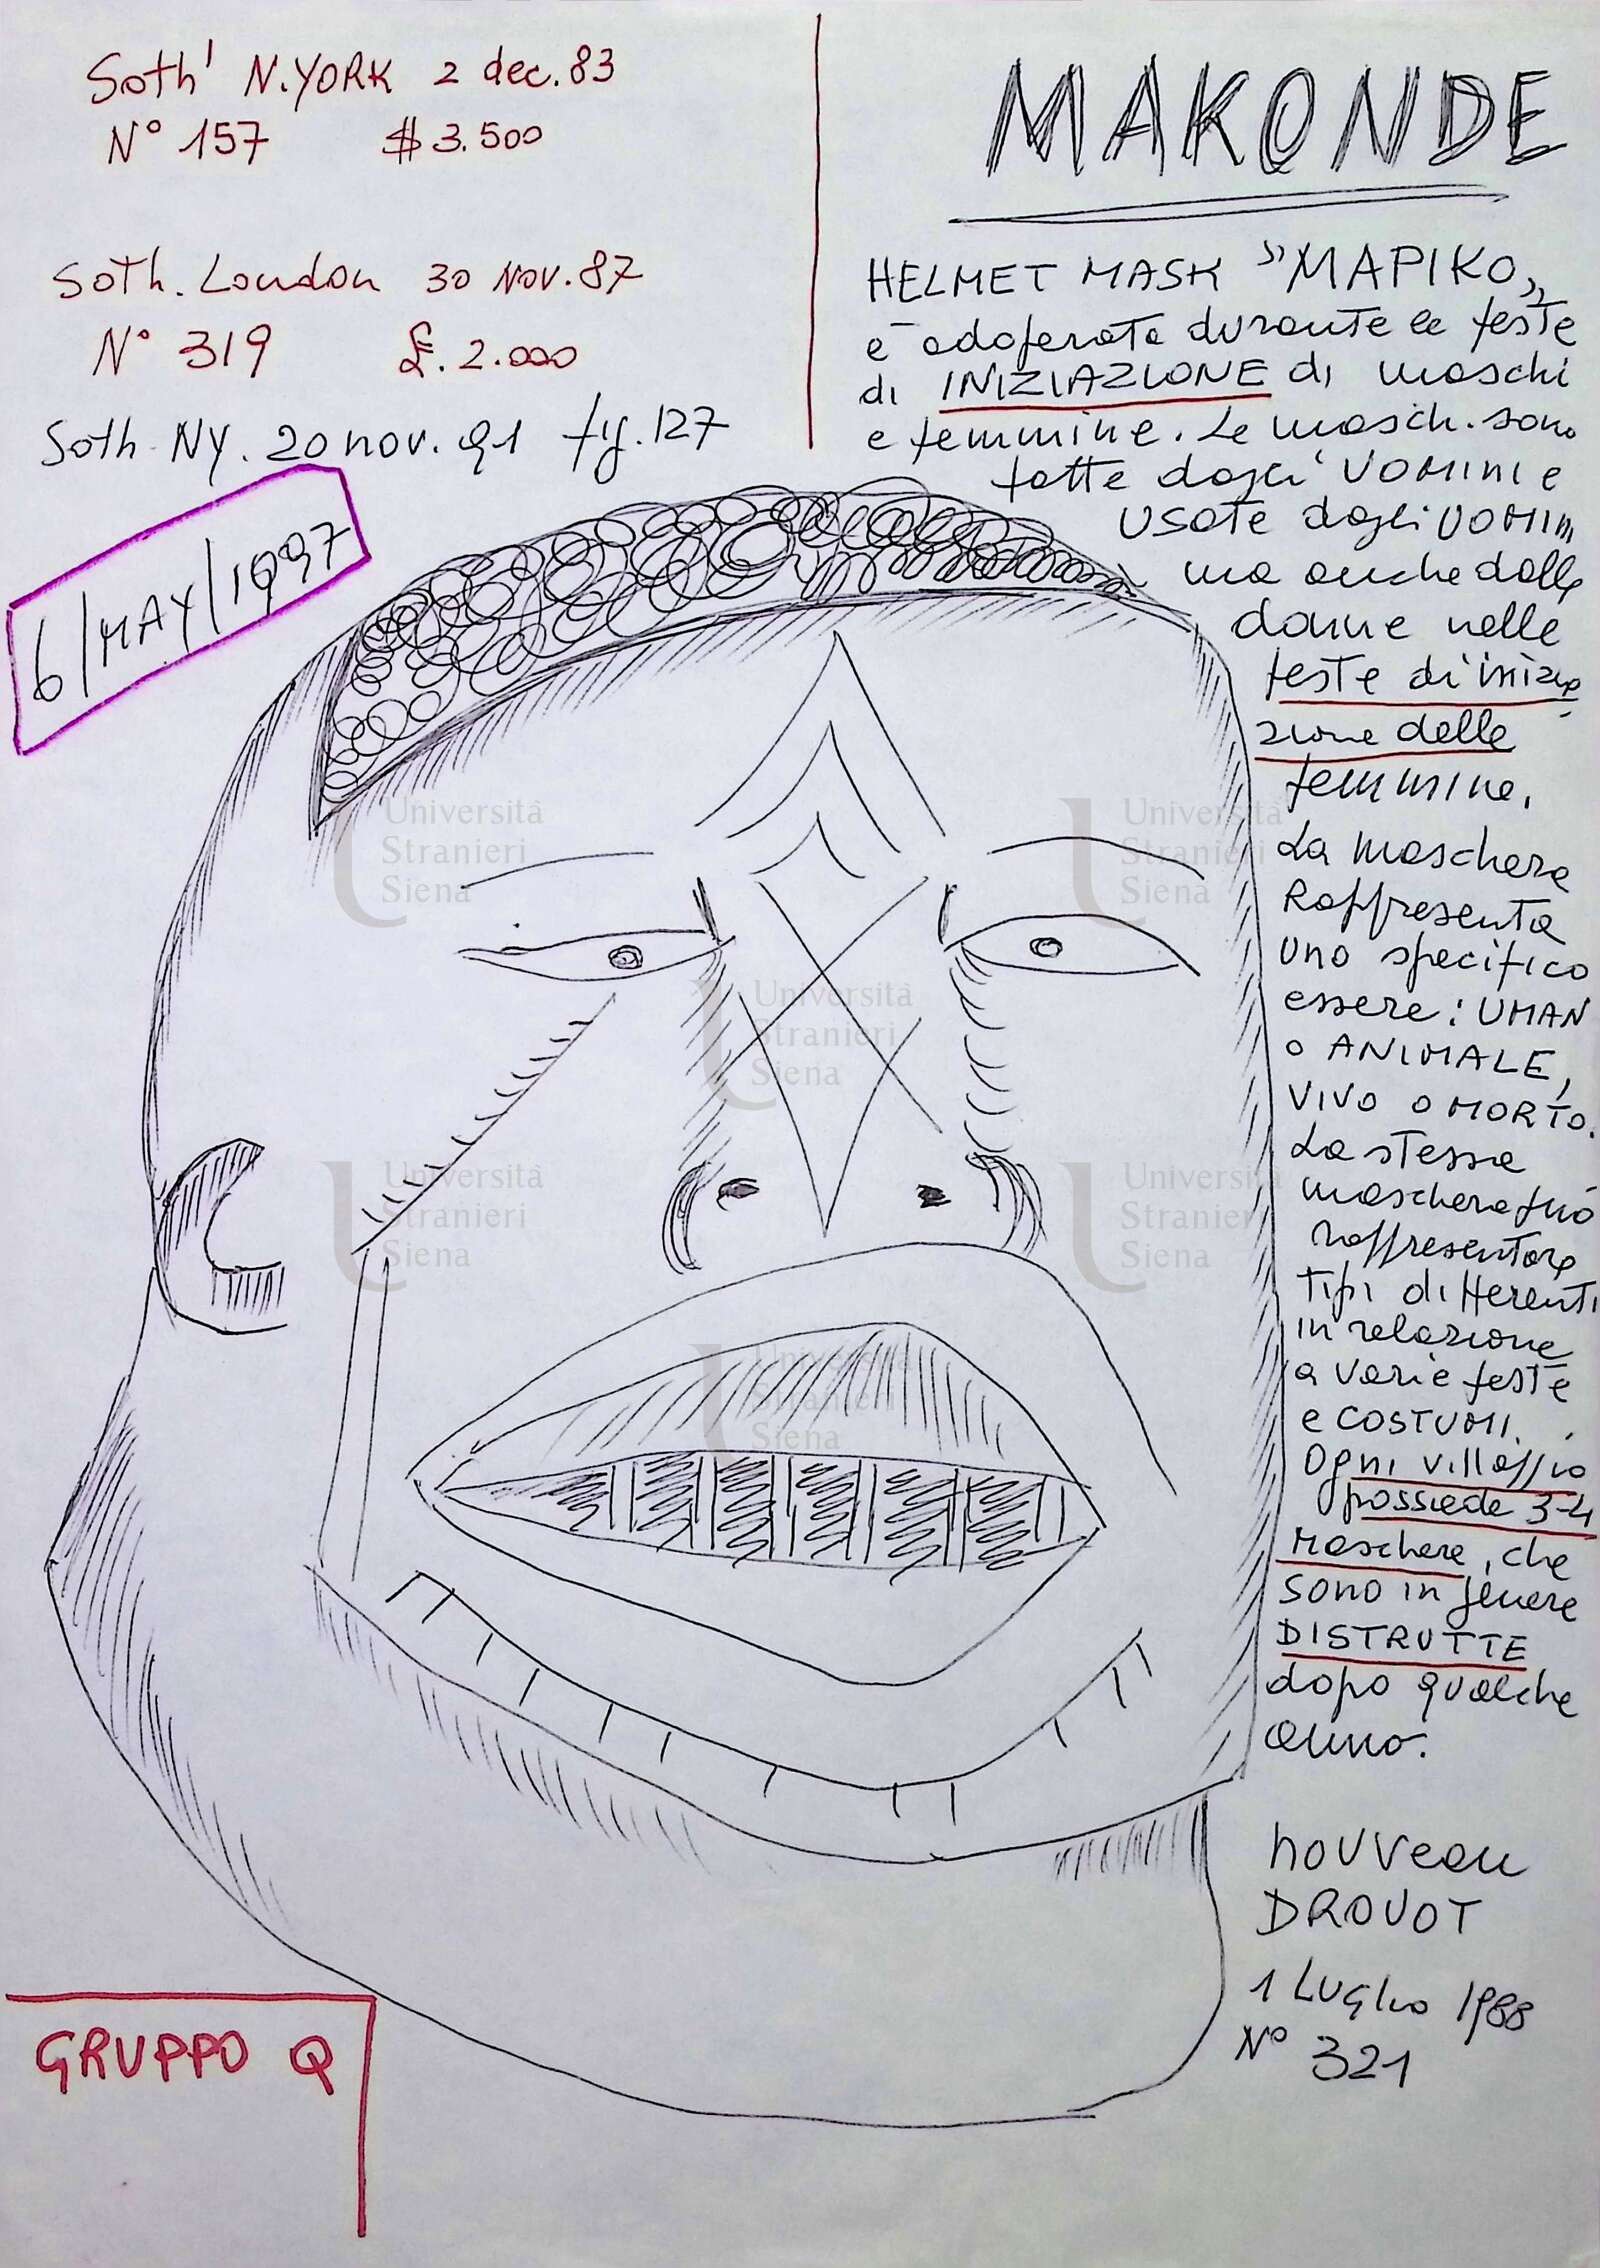 Soth' N.YORK 2 dec. 83
N° 157 $ 3.500
Soth. London 30 NOV. 87
N° 319 £. 2.000
Soth. NY. 20 nov. 91 fig. 127
6/MAY/1997
MAKONDE
HELMET MASK "MAPIKO"
è adoperata durante le feste
di INIZIAZIONE di maschi
e femmine. Le masch. sono
fatte dagli UOMINI e
USATE dagli UOMINI
ma anche dalle
donne nelle
feste di inizia
zione delle
femmine.
La maschera
Rappresenta
uno specifico
essere: UMAN
o ANIMALE,
VIVO o MORTO.
La stessa
maschera può
rappresentare
tipi differenti
in relazione
a varie feste
e COSTUMI.
Ogni villaggio
possiede 3-4
Maschere, che
sono in genere
DISTRUTTE
dopo qualche
anno.
nouveau
DROUOT
1 Luglio 1988
N° 321
GRUPPO Q
Università
Stranieri
Siena
Università
Stranieri
Siena
Università
Stranieri
Siena
Università
Stranieri
Siena
Università
Stranieri
Siena
Università
Stranieri
Siena